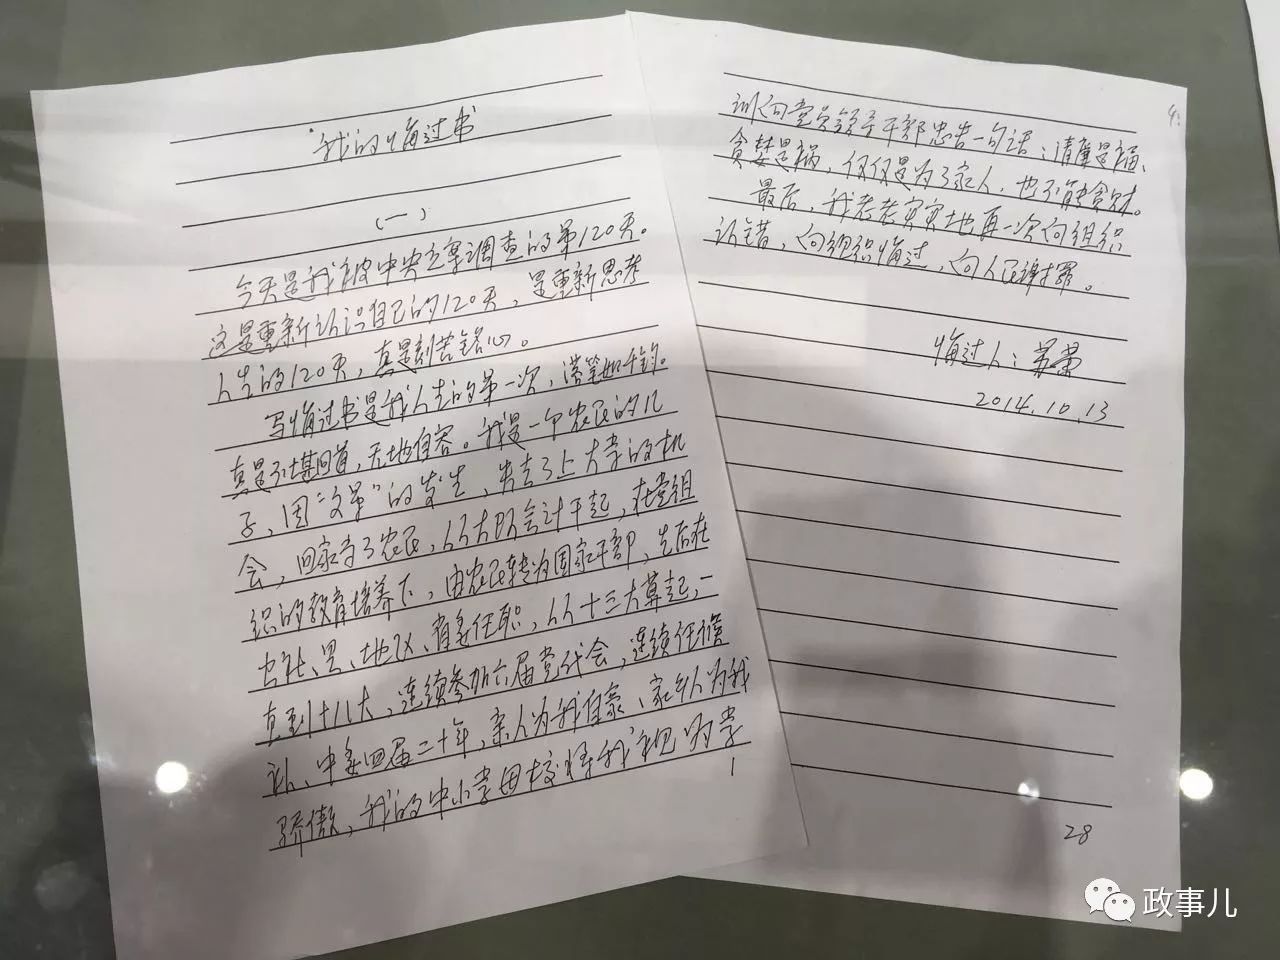 “我的悔过书”
（一）
今天是我被中央立案调查的第120天。
这是重新认识自己的120天，是重新思考
人生的120天，真是刻苦铭心。
写悔过书是我人生的第一次，落笔如千钧。
真是不堪回首，无地自容。我是一个农民的儿
子，因“文革”的发生，失去了上大学的机
会，回家当了农民，从大队会计干起，在党组
织的教育培养下，由农民转为国家干部，先后在
公社、县、地区、省委任职，从十三大算起，一
直到十八大，连续参加六届党代会，连续任候
补、中委四届二十年，亲人为我自豪、家乡人为我
骄傲，我的中小学母校将我视为学
1
训向党员领导干部忠告一句话：清廉是福、
贪婪是祸，仅仅是为了家人，也不能贪财。
最后，我老老实实地再一次向组织
认错，向组织悔过，向人民谢罪。
悔过人：苏荣
2014.10.13
28
政事儿